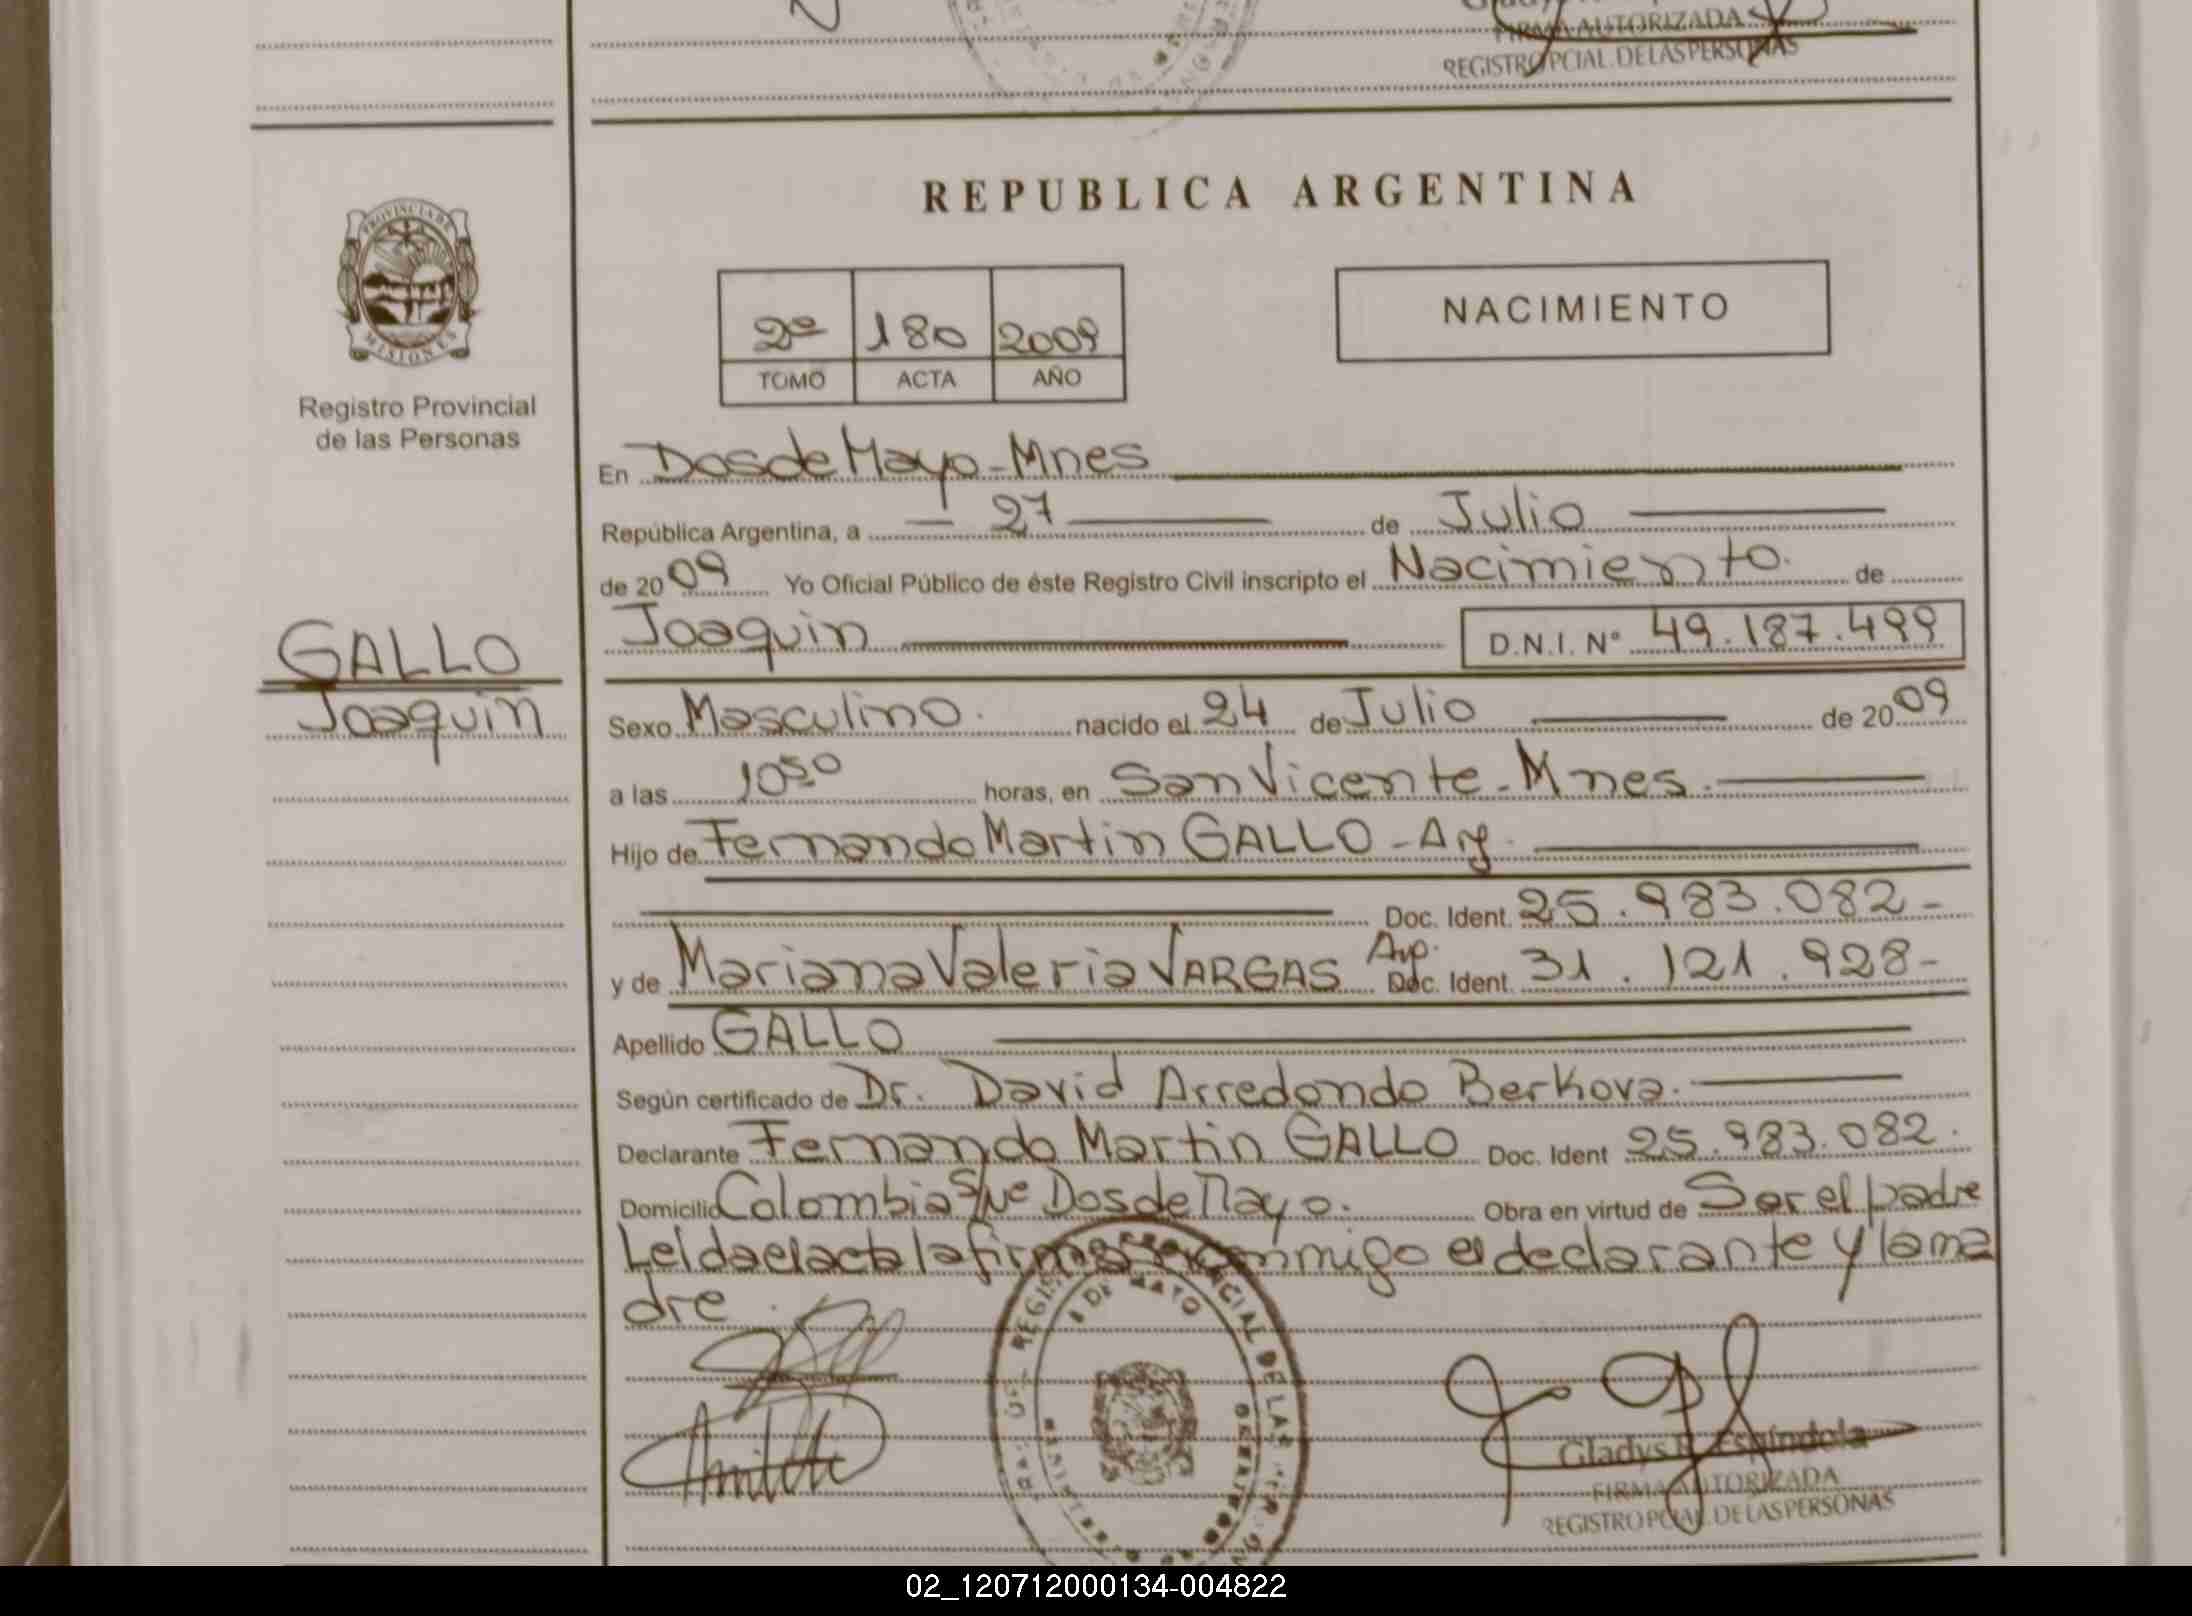 FIRMA AUTORIZADA
REGISTRO PCIAL. DE LAS PERSONAS
PROVINCIA DE
MISIONES
Registro Provincial
de las Personas
REPUBLICA ARGENTINA
2º 180 2009
TOMO ACTA AÑO
NACIMIENTO
En Dos de Mayo - Mnes
República Argentina, a 27 de Julio
de 2009 Yo Oficial Público de éste Registro Civil inscripto el Nacimiento. de
Joaquin D.N.I. Nº 49.187.499
GALLO
Joaquin
Sexo Masculino. nacido el 24 de Julio de 2009
a las 10 50 horas, en San Vicente - Mnes.
Hijo de Fernando Martin GALLO - Arg.
Doc. Ident. 25.983.082-
y de Mariana Valeria VARGAS Arg. Doc. Ident. 31.121.928-
Apellido GALLO
Según certificado de Dr. David Arredondo Berkova.
Declarante Fernando Martin GALLO Doc. Ident 25.983.082.
Domicilio Colombia S/Nº Dos de Mayo. Obra en virtud de Ser el padre
Leida el acta la firman conmigo el declarante y la ma
dre.
REGISTRO PROVINCIAL DE LAS
DE MAYO
Gladys R. Espíndola
FIRMA AUTORIZADA
REGISTRO PCIAL. DE LAS PERSONAS
02_120712000134-004822